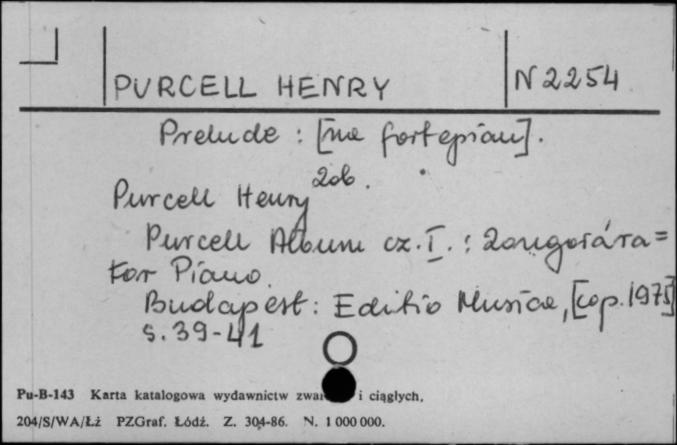 PURCELL HENRY N 2254
Prelude : [na fortepian].
Purcell Henry zob.
Purcell Album cz. I. : zongorára =
for Piano.
Budapest : Editio Musica, [cop. 1975]
s. 39-41
Pu-B-143 Karta katalogowa wydawnictw i ciągłych.
204/S/WA/Łż PZGraf. Łódź. Z. 304-86. N. 1 000 000.